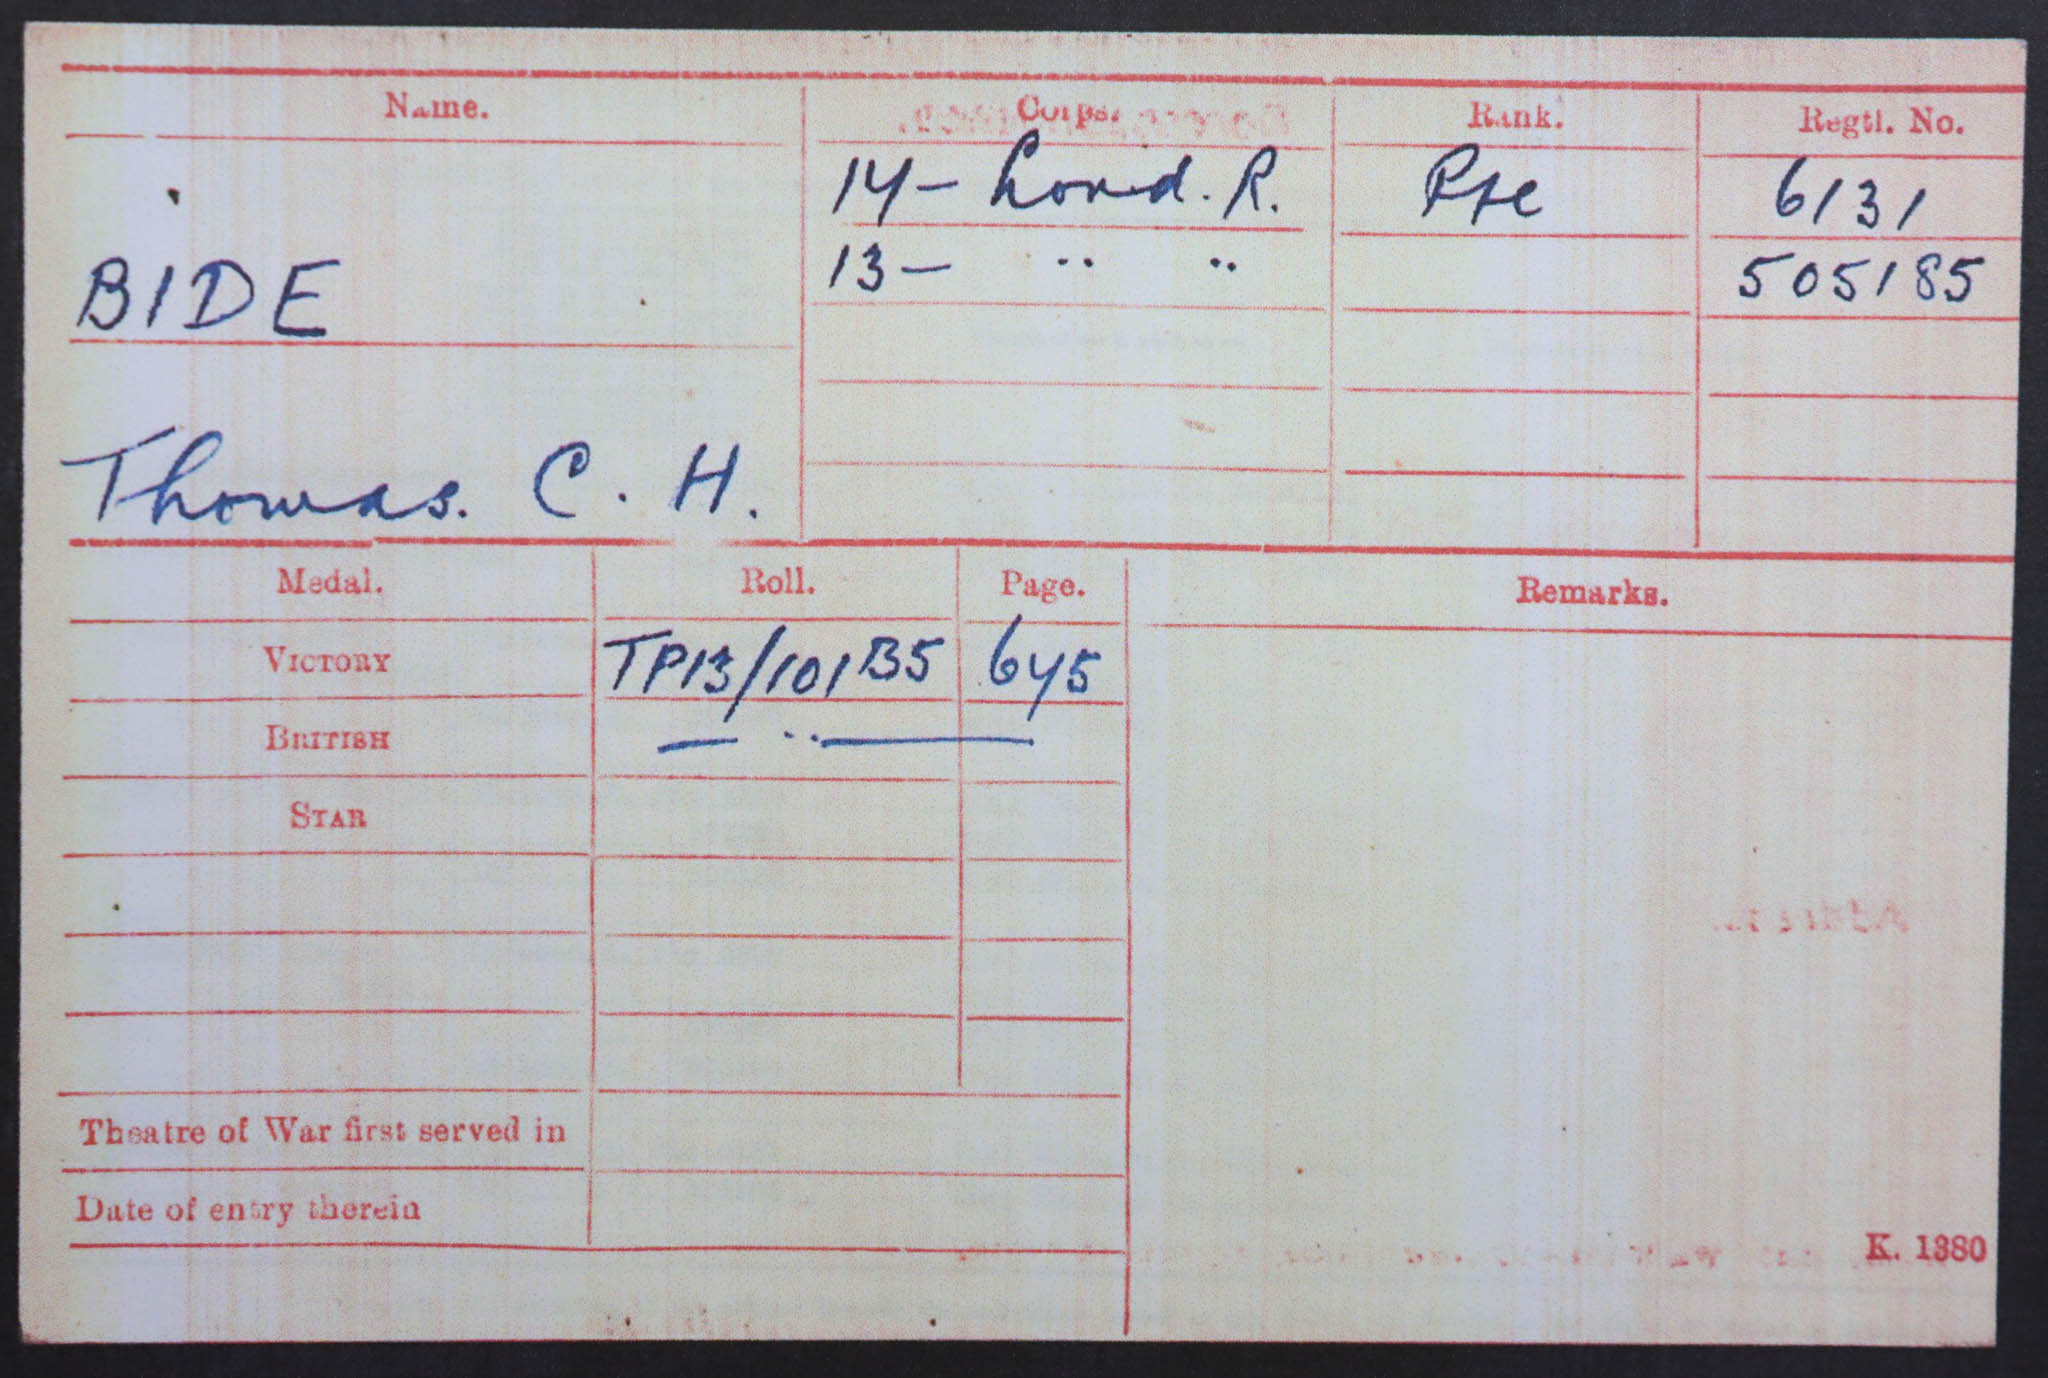 Name. Corps. Rank. Regtl. No.
14 – Lond. R. Pte 6131
BIDE 13 – " " 505185
Thomas. C. H.
Medal. Roll. Page. Remarks.
VICTORY TP13/101B5 645
BRITISH — " —
STAR
Theatre of War first served in
Date of entry therein
K. 1380